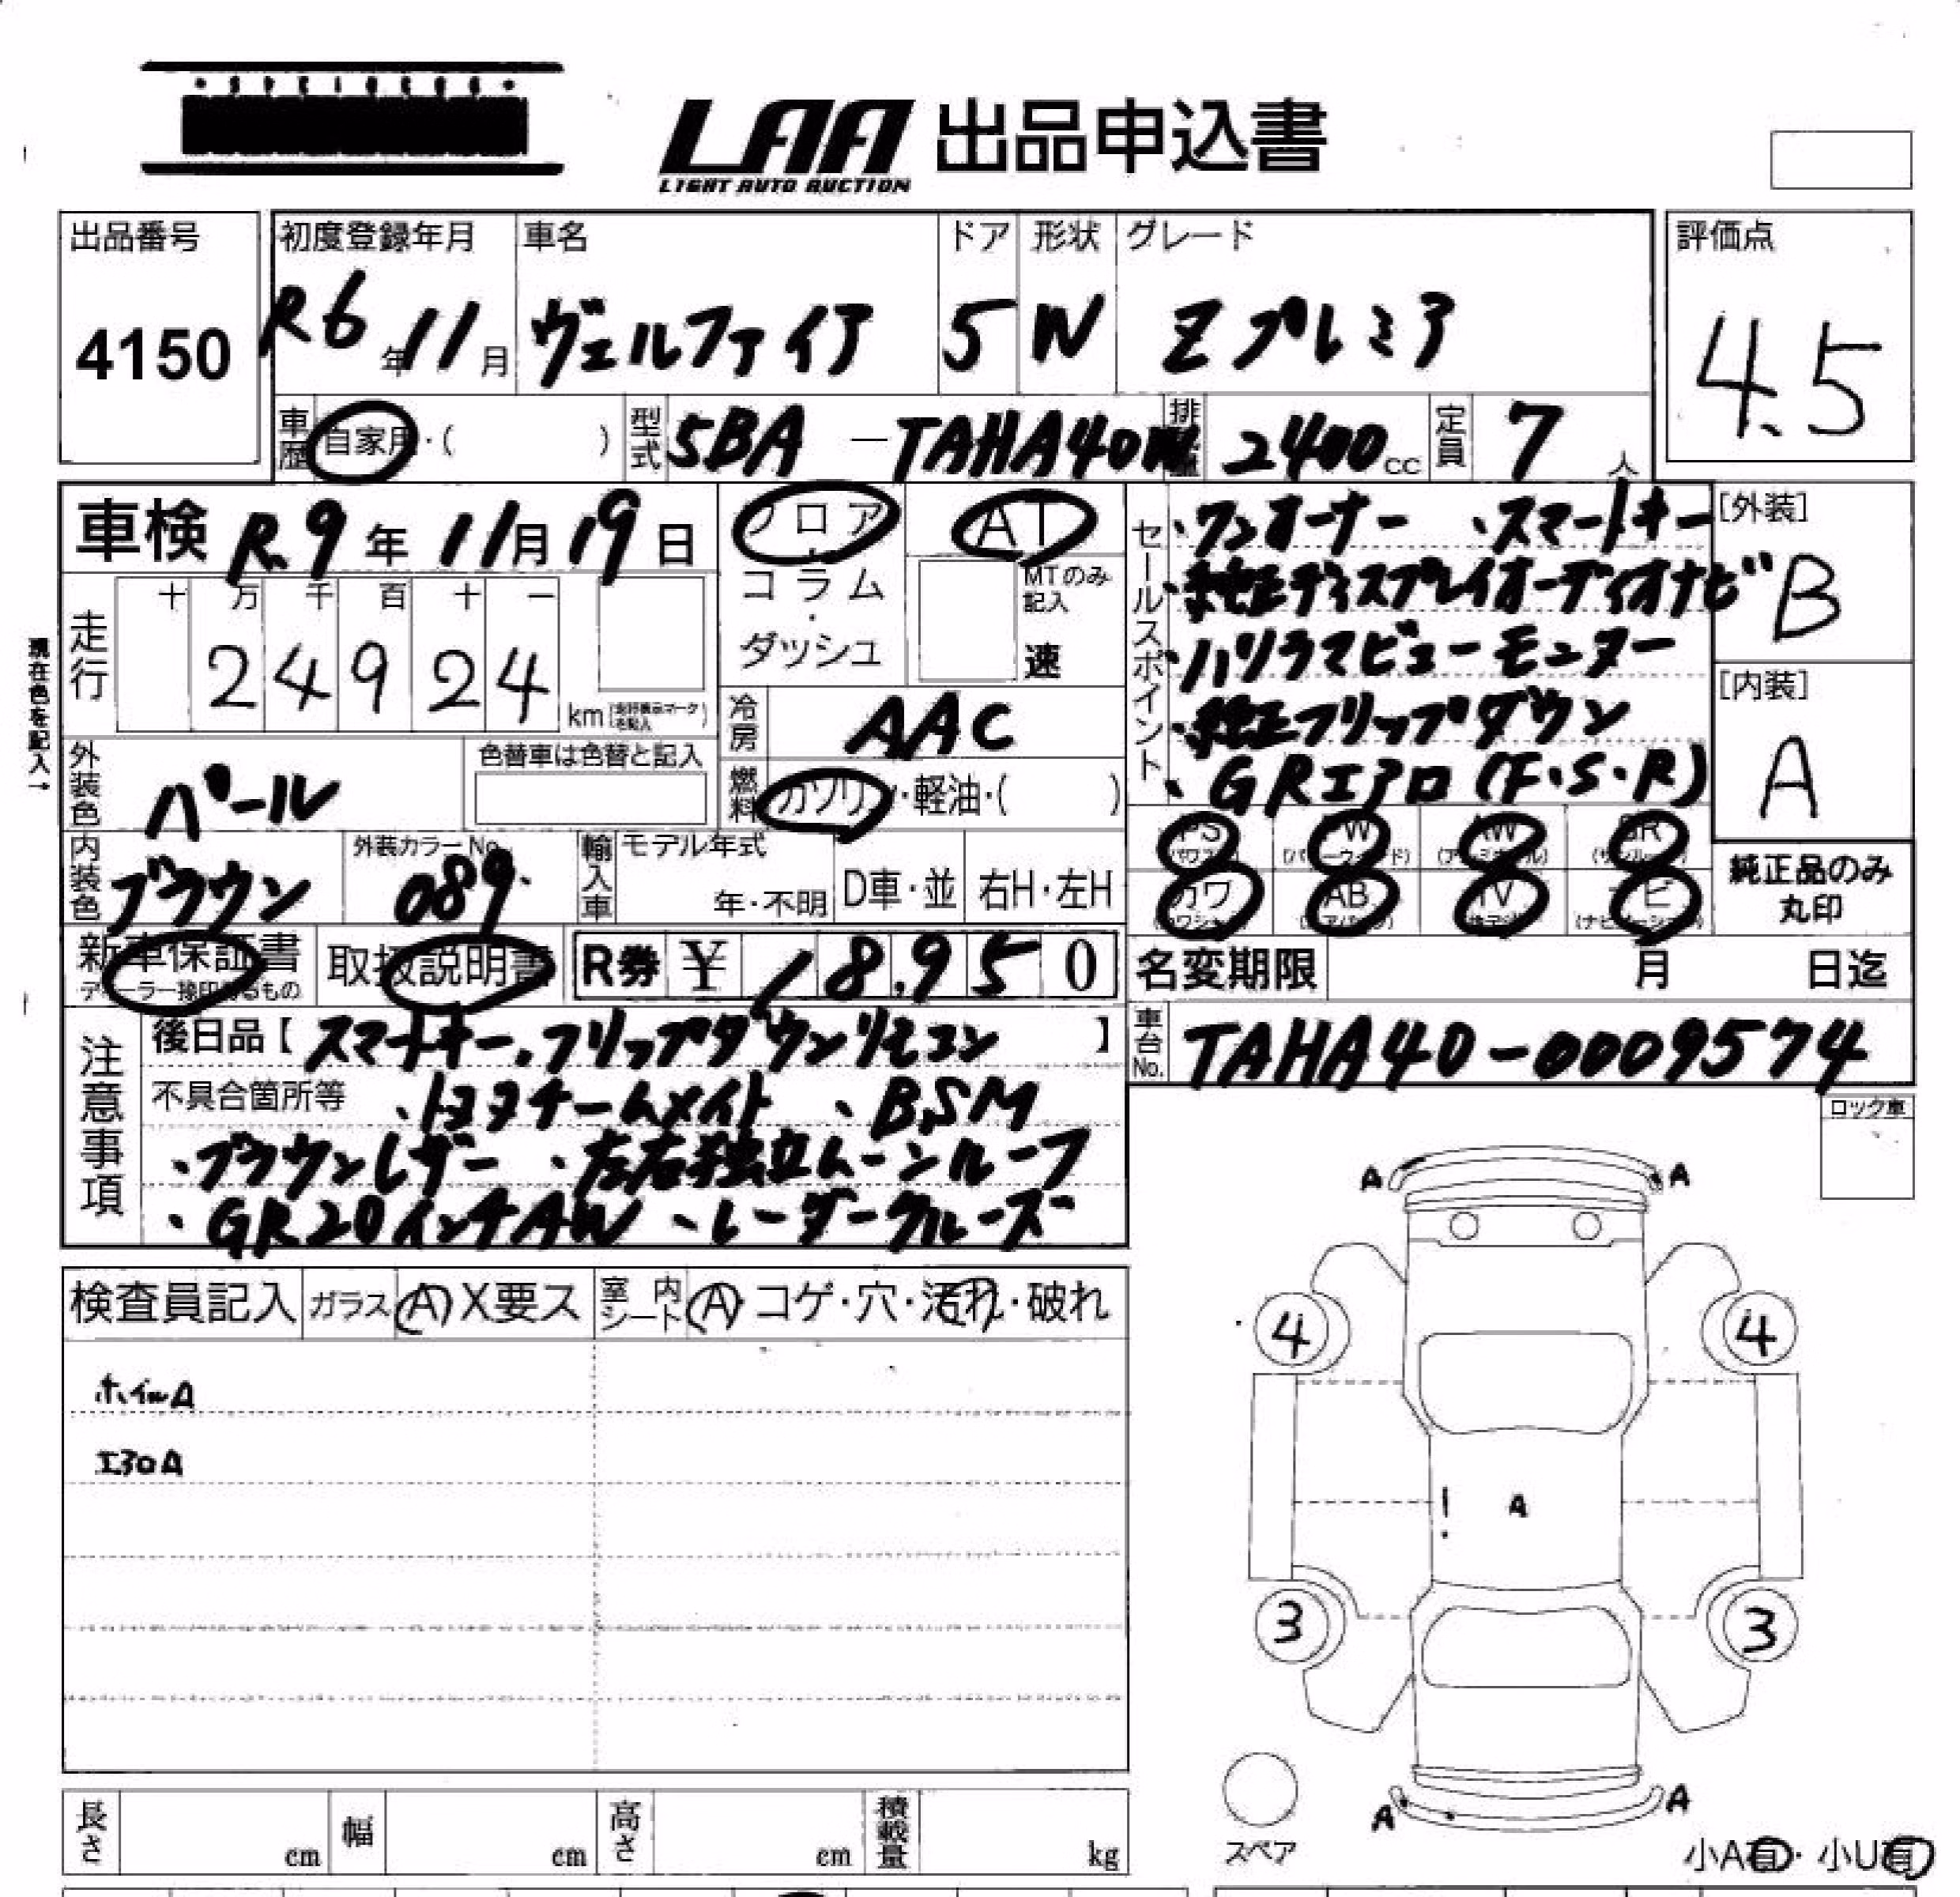 LAA 出品申込書
LIGHT AUTO AUCTION
出品番号
4150
初度登録年月
R6年11月
車名
ヴェルファイア
ドア
5
形状
W
グレード
Zプレミア
評価点
4.5
車歴 自家用・( )
型式 5BA - TAHA40W
排気量 2400cc
定員 7人
車検 R.9年11月19日
フロア・コラム・ダッシュ
AT
MTのみ記入
速
走行
十 万 千 百 十 一
24924 km
現在色を記入→
外装色 パール
色替車は色替と記入
冷房 AAC
燃料 ガソリン・軽油・( )
内装色 ブラウン
外装カラーNo. 089
輸入車 モデル年式
年・不明
D車・並
右H・左H
セールスポイント
・ワンオーナー ・スマートキー
・純正ディスプレイオーディオナビ
・パノラマビューモニター
・純正フリップダウン
・GRエアロ(F・S・R)
[外装]
B
[内装]
A
PS PW AW SR
カワ AB TV ナビ
純正品のみ丸印
新車保証書
取扱説明書
R券 ¥ 18,950
名変期限 月 日迄
車台No. TAHA40-0009574
注意事項
後日品【スマートキー、フリップダウンリモコン】
不具合箇所等 ・トヨタチームメイト ・BSM
・ブラウンレザー ・左右独立ムーンルーフ
・GR20インチAW ・レーダークルーズ
ロック車
検査員記入 ガラス A X要ス 室内シート A コゲ・穴・汚れ・破れ
ホイールA
エアロA
A A
4 4
A
3 3
A A
スペア
小A有・小U有
長さ cm 幅 cm 高さ cm 積載量 kg